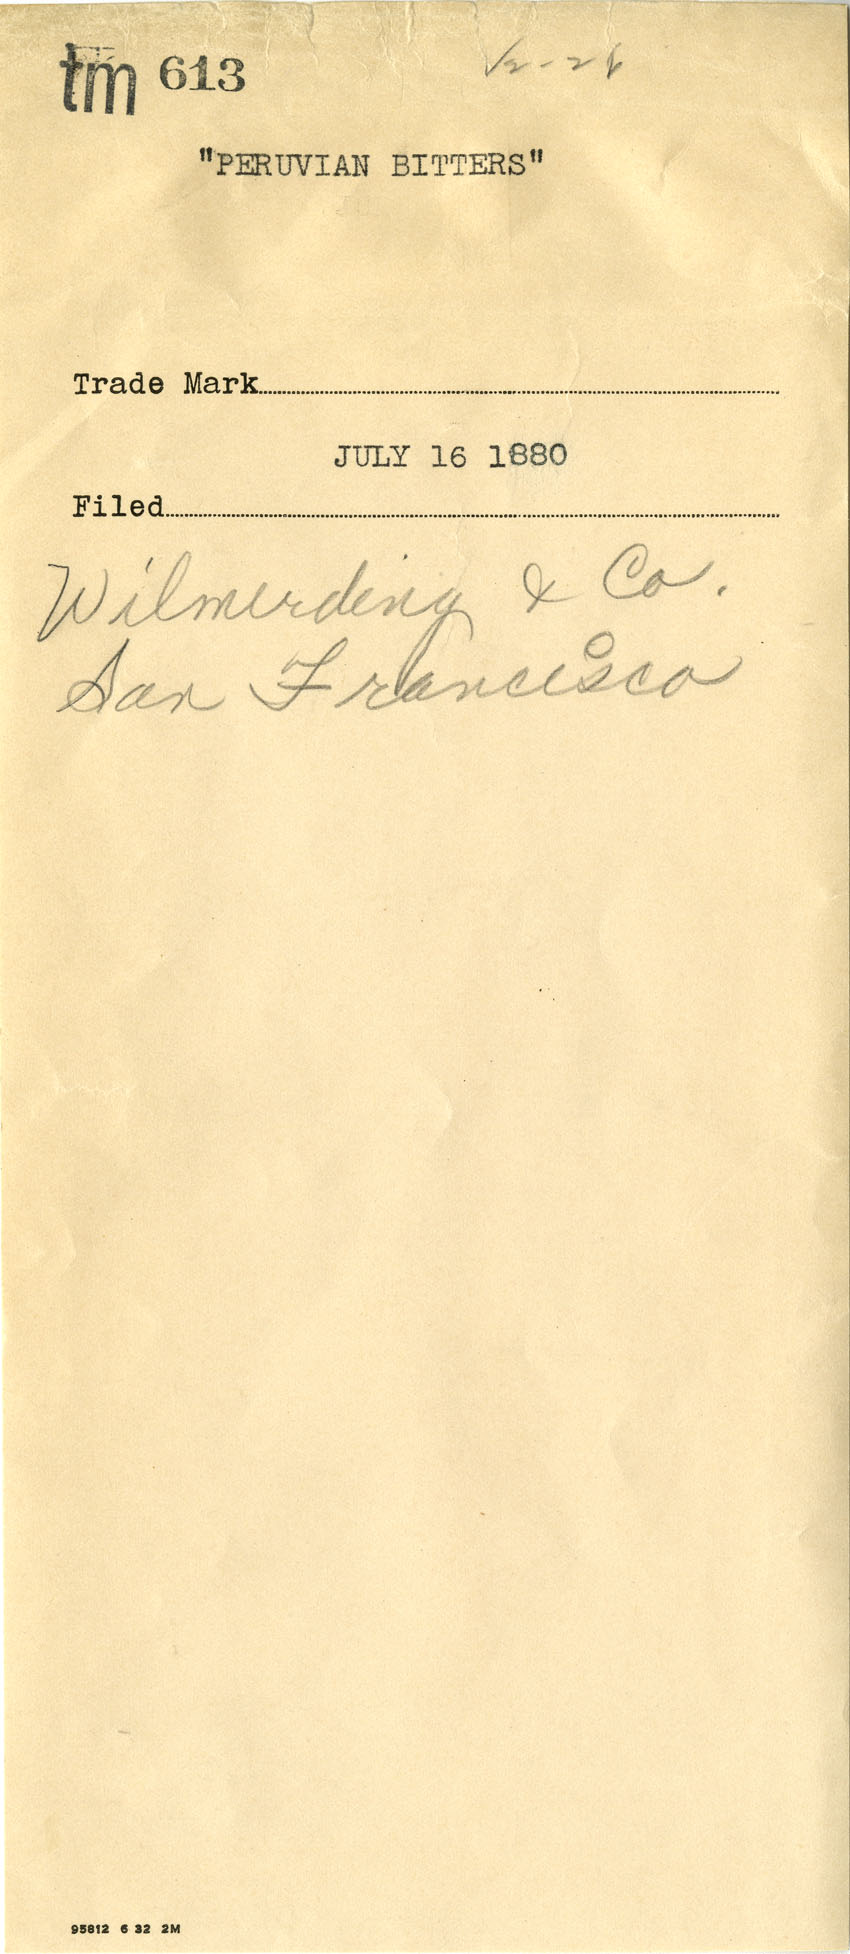 tm 613
"PERUVIAN BITTERS"
Trade Mark
JULY 16 1880
Filed
Wilmerding & Co.
San Francisco
95812 6 32 2M